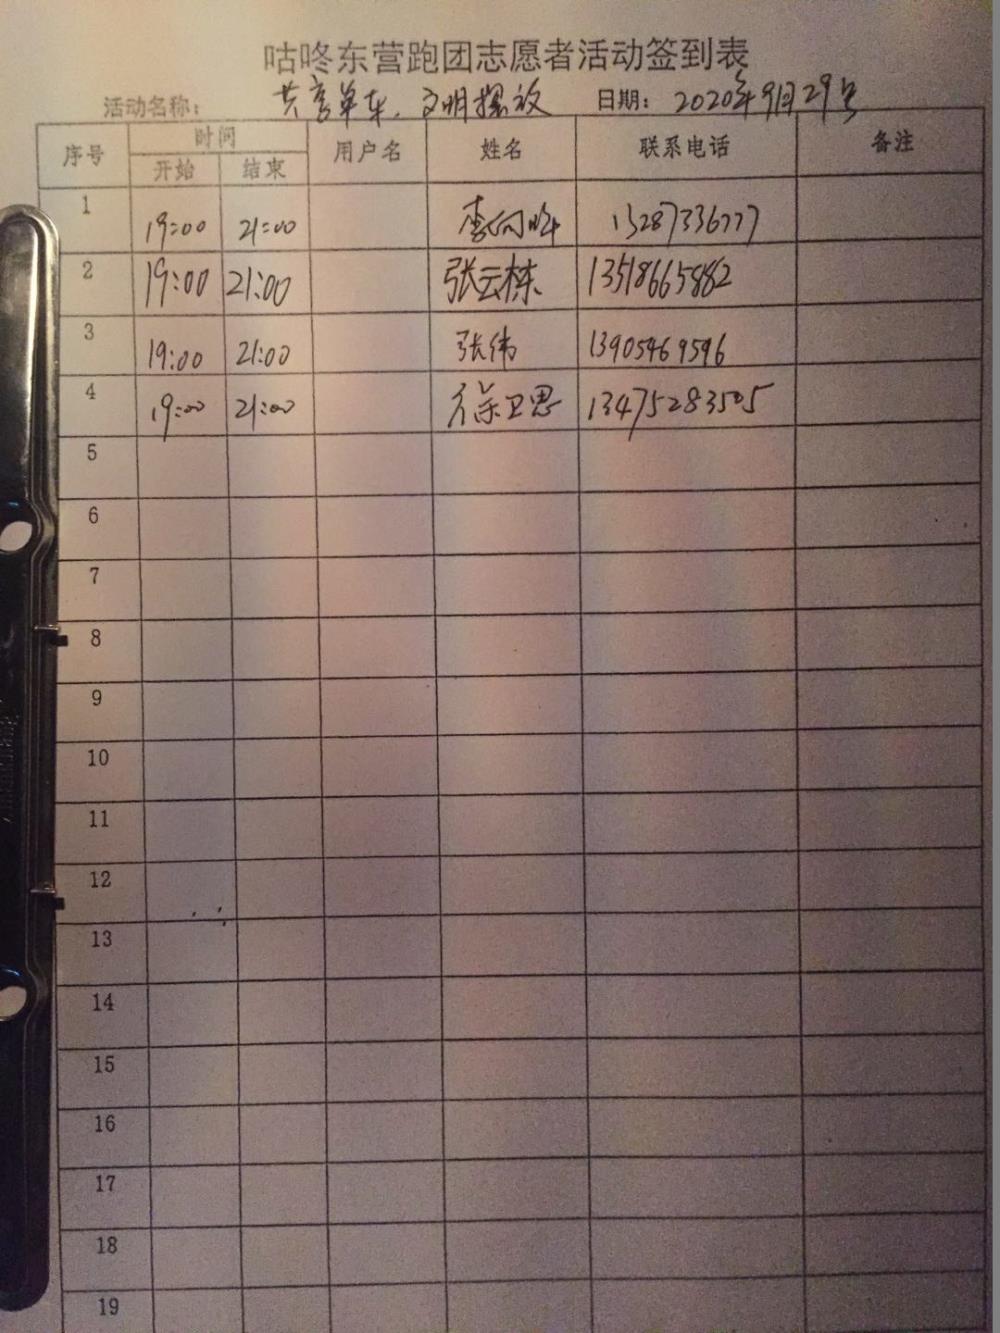 咕咚东营跑团志愿者活动签到表
活动名称： 共享单车，文明摆放 日期： 2020年9月29号
序号 时间 用户名 姓名 联系电话 备注
开始 结束
1 19:00 21:00 李向晖 13287336777
2 19:00 21:00 张云栋 13518665882
3 19:00 21:00 张伟 13905469596
4 19:00 21:00 徐卫思 13475283505
5
6
7
8
9
10
11
12
13
14
15
16
17
18
19